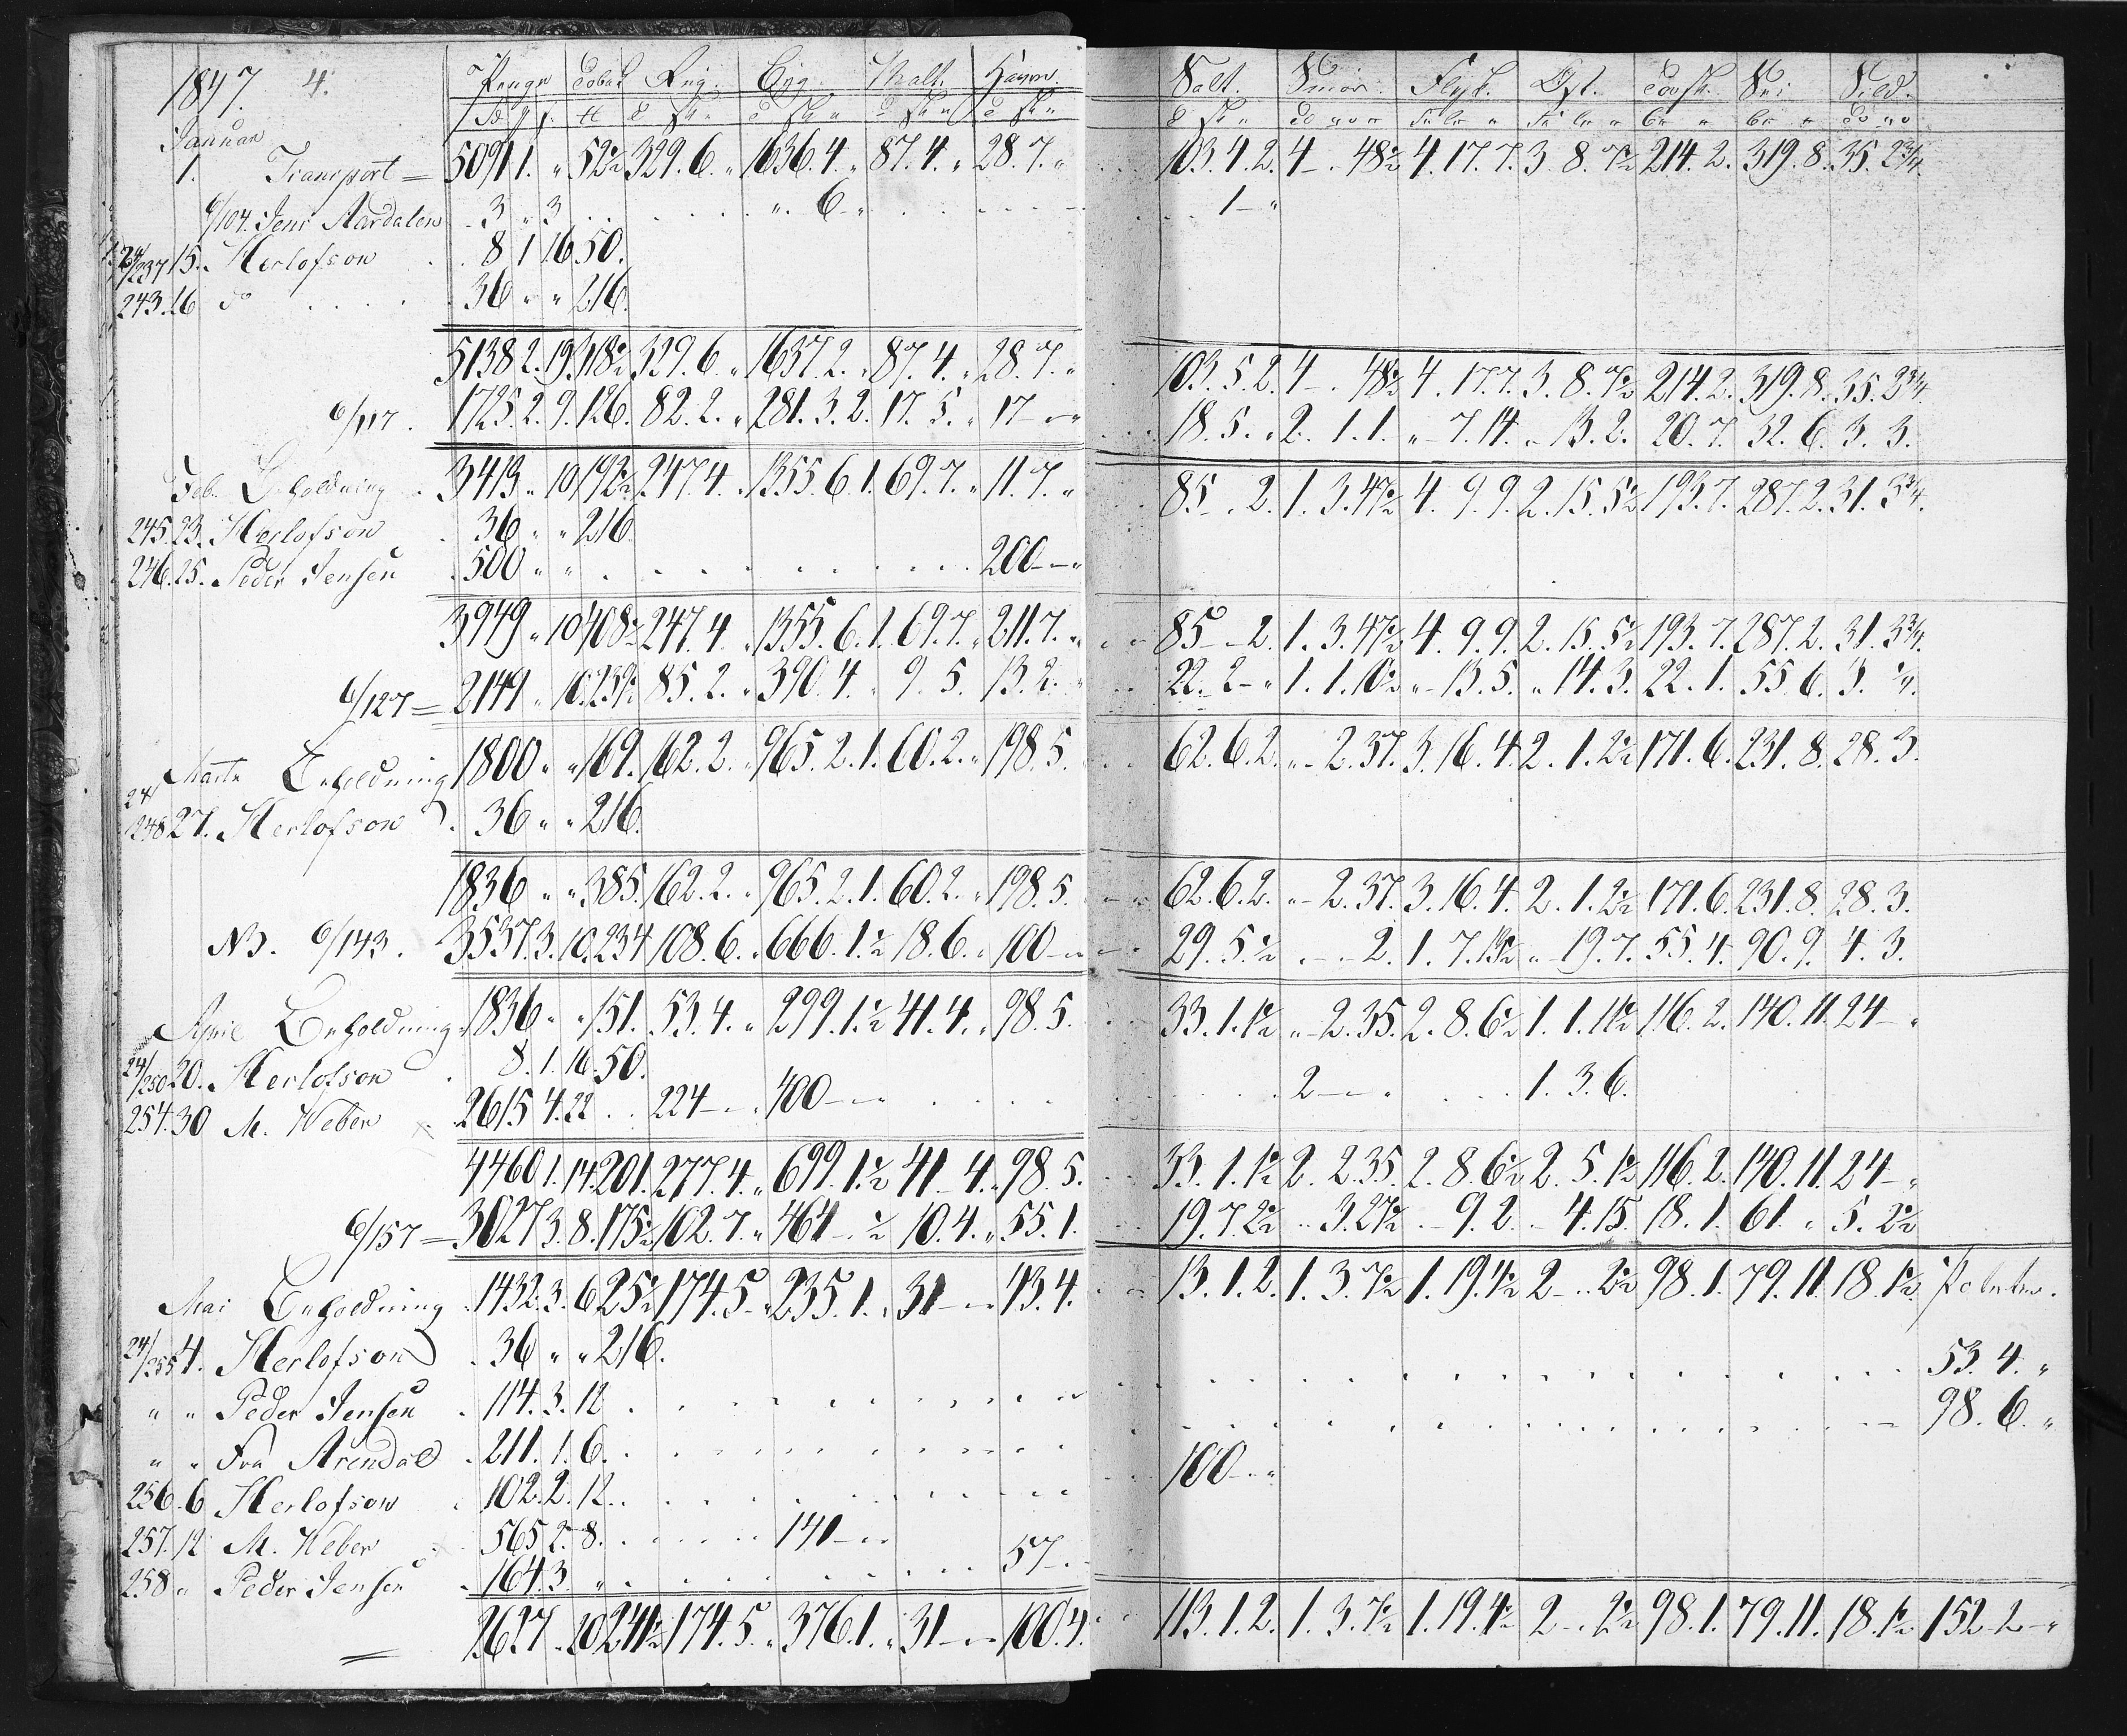 1847. 4. Penge Tobak Rug. Byg. Malt. Havre. Salt. Smør. Flesk. Sild.
Januar
1. Transport = 5091 1. " 52½ 329. 6. " 1636. 4. " 87. 4. " 28. 7. " 103. 4. 2. 4 - . 48½ 4. 17. 7. 3. 8. 7½ 214. 2. 319. 8. 35. 2¾.
6/104. Jens Aardalen 3 " 3 " 6 - " 1 - "
24/237 15. Herlofson 8 1 16 50.
243. 16 do 36 " " 216.
5138 2. 19 318½ 329. 6. " 1637. 2. " 87. 4. " 28. 7. " 103. 5. 2. 4 - . 48½ 4. 17. 7. 3. 8. 7½ 214. 2. 319. 8. 35. 2¾.
6/117. 1725. 2. 9. 126. 82. 2. " 281. 3. 2. 17. 5. " 17 - - " 18. 5. " 2. 1. 1. " - 7. 14. " 13. 2. 20. 7. 32. 6. 3. 3.
Feb. Beholdning 3413 " 10 192½ 247. 4. " 1355. 6. 1. 69. 7. " 11. 7. " 85 - . 2. 1. 3. 47½ 4. 9. 9. 2. 15. 5½ 193. 7. 287. 2. 31. 3¾.
245. 23. Herlofson 36 " " 216.
246. 25. Peder Jensen 500 " " 200 - - "
3949 " 10 408½ 247. 4. " 1355. 6. 1. 69. 7. " 211. 7. " 85 - - 2. 1. 3. 47½ 4. 9. 9. 2. 15. 5½ 193. 7. 287. 2. 31. 3¾.
6/127 = 2149 " 10. 239½ 85. 2. " 390. 4. " 9. 5. 13. 2. 22. 2 - " 1. 1. 10½ " - 13. 5. " 14. 3. 22. 1. 55. 6. 3. ¾.
Marts Beholdning 1800 " " 169. 162. 2. " 965. 2. 1. 60. 2. " 198. 5. 62. 6. 2. " - 2. 37. 3. 16. 4. 2. 1. 2½ 171. 6. 231. 8. 28. 3.
24/248 27. Herlofson 36 " " 216.
1836 " " 385. 162. 2. " 965. 2. 1. 60. 2. " 198. 5. 62. 6. 2. " - 2. 37. 3. 16. 4. 2. 1. 2½ 171. 6. 231. 8. 28. 3.
NB. 6/143. 3537. 3. 10. 234 108. 6. " 666. 1. ½ 18. 6. " 100 - - 29. 5. ½ " - - 2. 1. 7. 13½ " - 19. 7. 55. 4. 90. 9. 4. 3.
April Beholdning 1836 " " 151. 53. 4. " 299. 1. ½ 41. 4. " 98. 5. 33. 1. 1½ " - 2. 35. 2. 8. 6½ 1. 1. 11½ 116. 2. 140. 11. 24 - "
24/250 20. Herlofson 8. 1. 16. 50.
254. 30 M. Weber 2615 4. 22 224 - . 400 - - 2 - - " 1. 3. 6.
4460 1. 14. 201. 277. 4. " 699. 1. ½ 41 - 4. " 98. 5. 33. 1. 1½ 2. 2. 35. 2. 8. 6½ 2. 5. 1½ 116. 2. 140. 11. 24 - "
6/157 = 3027 3. 8. 175½ 102. 7. " 464 - . ½ 10. 4. " 55. 1. 19. 7. 2½ " 3. 27½ " - 9. 2. - 4. 15. 18. 1. 61. " 5. 2½
Mai Beholdning 1432. 3. 6 25½ 174. 5 - " 235. 1. " 31 - - 43. 4. 13. 1. 2. 1. 3. 7½ 1. 19. 4½ 2 - . 2½ 98. 1. 79. 11. 18. 1½.
24/255 4. Herlofson 36 " " 216.
" " Peder Jensen 114. 3. 12 53. 4. "
" " Fra Arendal 211. 1. 6. 98. 6. "
256. 6 Herlofson 102. 2. 12. 100 - . "
257. 12 M. Weber 565 2. 8. 141 - -
258 " Peder Jensen 164. 3 " 57 - .
2627 " 10 241½ 174. 5. " 376. 1. " 31 - - 100. 4. 113. 1. 2. 1. 3. 7½ 1. 19. 4½ 2 - . 2½ 98. 1. 79. 11. 18. 1½ 152. 2 - "